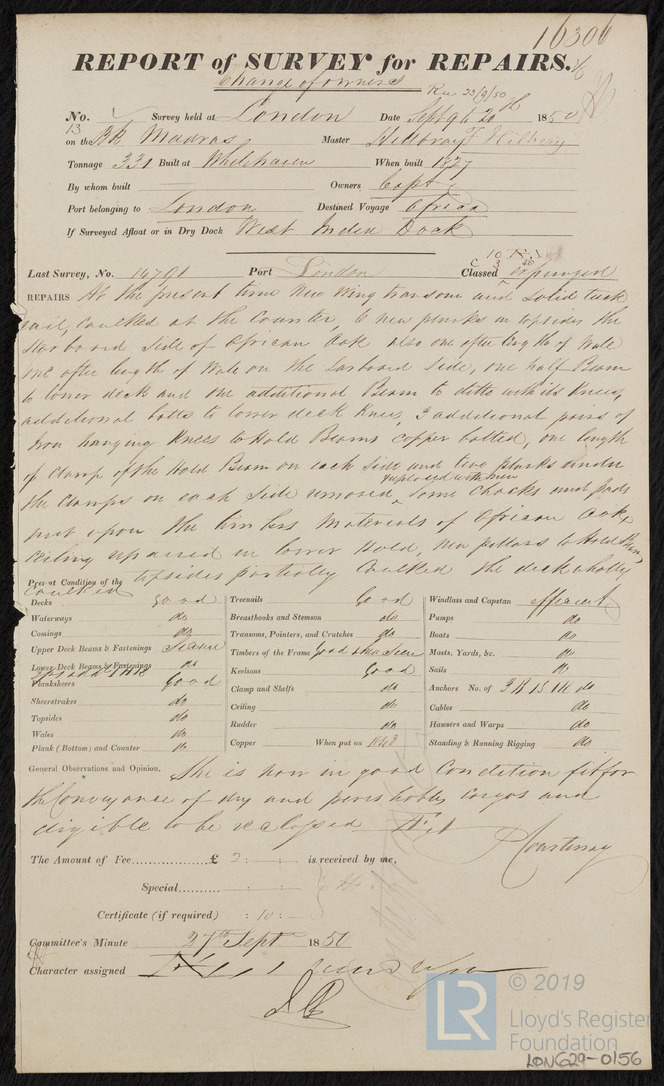 16306
REPORT of SURVEY for REPAIRS.
Change of owners
Rec 23/9/50
No. Survey held at London Date Sept 9 & 20th 1850
13
on the Bk Madras Master Hilbray J Hilbery
Tonnage 331 Built at Whitehaven When built 1837
By whom built Owners Capt
Port belonging to London Destined Voyage Africa
If Surveyed Afloat or in Dry Dock West India Dock
Last Survey, No. 14791 Port London Classed expunged
REPAIRS At the present time New Wing transom and solid tuck
rail, Caulked at the Counter, 6 new planks in topsides the
Starboard side of African Oak also one after length of Wale
one after length of Wale on the Larboard Side, one half Beam
to lower deck and one additional Beam to ditto with its knees,
additional bolts to lower deck knees, 3 additional pairs of
Iron hanging Knees to Hold Beams copper bolted, one length
of Clamp of the Hold Beam on each side and two planks under
the Clamps on each side removed replaced with new some chocks and
put upon the timbers Materials of African Oak,
Ceiling repaired in lower Hold, new pillars to Hold Beams,
topsides partially Caulked the deck wholly
Caulked
Present Condition of the
Decks good
Waterways do
Comings do
Upper Deck Beams & Fastenings
Lower Deck Beams & Fastenings do
Planksheers Good
Sheerstrakes do
Topsides do
Wales do
Plank (Bottom) and Counter do
Treenails Good
Breasthooks and Stemson do
Transoms, Pointers, and Crutches do
Timbers of the Frame good
Keelsons Good
Clamp and Shelfs do
Ceiling do
Rudder do
Copper When put on
Windlass and Capstan efficient
Pumps do
Boats do
Masts, Yards, &c. do
Sails do
Anchors No. of 3 B 1 S 1 K do
Cables do
Hawsers and Warps do
Standing & Running Rigging do
General Observations and Opinion, She is now in good Condition fit for
the Conveyance of dry and perishable cargos and
eligible to be reclassed
Courtenay
The Amount of Fee £ 2 : is received by me,
Special
Certificate (if required) : 10 :
Committee's Minute 27th Sept 1850
Character assigned
© 2019
LR
Lloyd's Register
Foundation
LON629-0156